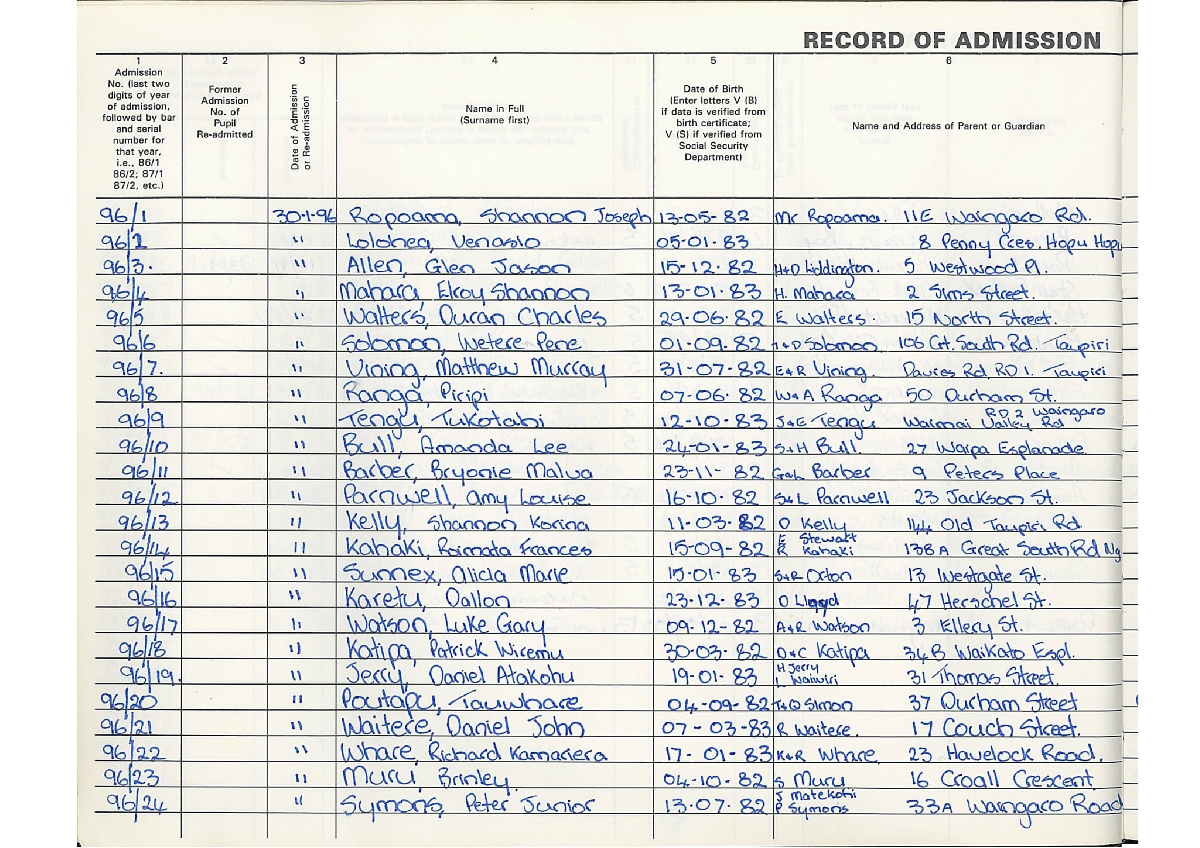 RECORD OF ADMISSION
1 2 3 4 5 6
Admission No. (last two digits of year of admission, followed by bar and serial number for that year, i.e., 86/1 86/2; 87/1 87/2, etc.)
Former Admission No. of Pupil Re-admitted
Date of Admission or Re-admission
Name in Full (Surname first)
Date of Birth (Enter letters V (B) if data is verified from birth certificate; V (S) if verified from Social Security Department)
Name and Address of Parent or Guardian
96/1 30-1-96 Ropoama, Shannon Joseph 13-05-82 Mr Ropoama. 11E Waingaro Rd.
96/2 " Lolohea, Venasio 05-01-83 8 Penny Cres. Hopu Hopu
96/3. " Allen, Glen Jason 15-12-82 H+D Liddington. 5 Westwood Pl.
96/4 " Mahara, Elroy Shannon 13-01-83 H. Mahara 2 Sims Street.
96/5 " Walters, Duran Charles 29-06-82 E Walters 15 North Street.
96/6 " Solomon, Wetere Pene 01-09-82 T+D Solomon 106 Grt. South Rd. Taupiri
96/7. " Vining, Matthew Murray 31-07-82 E+R Vining. Davies Rd. RD 1. Taupiri
96/8 " Ranga, Piripi 07-06-82 W+A Ranga 50 Durham St.
96/9 " Tengu, Tukotahi 12-10-83 J+E Tengu Waimai Valley Rd RD 2 Waingaro
96/10 " Bull, Amanda Lee 24-01-83 S+H Bull. 27 Waipa Esplanade
96/11 " Barber, Bryonie Malua 23-11-82 G+L Barber 9 Peters Place
96/12 " Parnwell, Amy Louise 16-10-82 S+L Parnwell 23 Jackson St.
96/13 " Kelly, Shannon Korina 11-03-82 D Kelly 144 Old Taupiri Rd
96/14 " Kahaki, Roimata Frances 15-09-82 E Stewart R Kahaki 138A Great South Rd Ng
96/15 " Sunnex, Alicia Marie 15-01-83 S+R Orton 13 Westgate St.
96/16 " Karetu, Dallon 23-12-83 D Lloyd 47 Herschel St.
96/17 " Watson, Luke Gary 09-12-82 A+R Watson 3 Ellery St.
96/18 " Katipa, Patrick Wiremu 30-03-82 D+C Katipa 34B Waikato Espl.
96/19. " Jerry, Daniel Atakohu 19-01-83 H Jerry L Waiwiri 31 Thomas Street.
96/20 " Poutapu, Tauwhare 04-09-82 T+D Simon 37 Durham Street
96/21 " Waitere, Daniel John 07-03-83 R Waitere. 17 Couch Street.
96/22 " Whare, Richard Kamariera 17-01-83 K+R Whare 23 Havelock Road.
96/23 " Muru, Brinley. 04-10-82 S Muru 16 Croall Crescent
96/24 " Symons, Peter Junior 13-07-82 J Matekohi P Symons 33A Waingaro Road